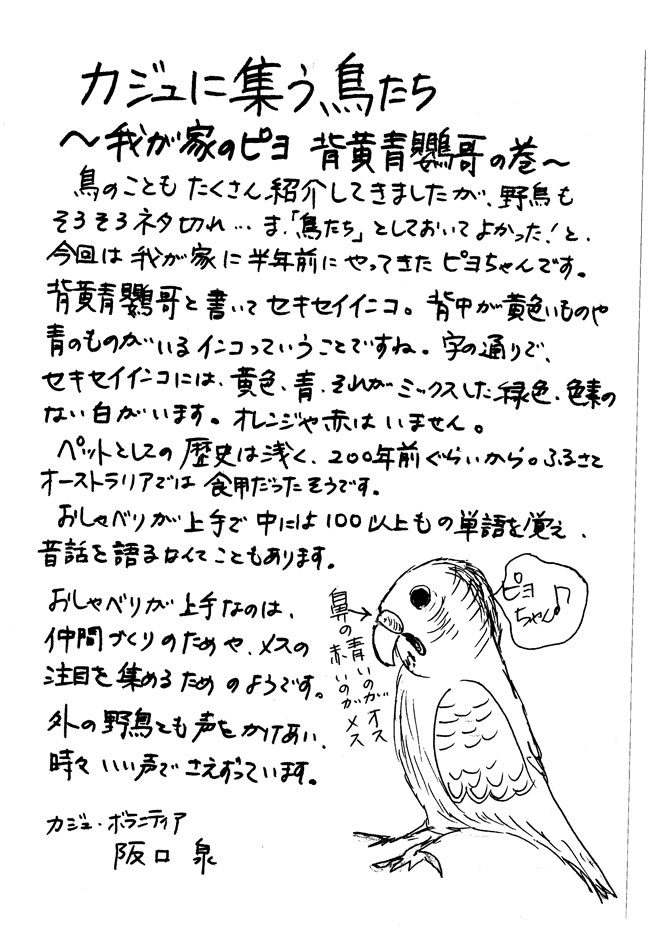 カジュに集う鳥たち
～我が家のピヨ 背黄青鸚哥の巻～
鳥のこともたくさん紹介してきましたが、野鳥も
そろそろネタ切れ…ま、「鳥たち」としておいてよかった！と、
今回は我が家に半年前にやってきたピヨちゃんです。
背黄青鸚哥と書いてセキセイインコ。背中が黄色いものや
青のものがいるインコっていうことですね。字の通りで、
セキセイインコには、黄色、青、それがミックスした緑色、色素の
ない白がいます。オレンジや赤はいません。
ペットとしての歴史は浅く、200年前ぐらいから。ふるさと
オーストラリアでは食用だったそうです。
おしゃべりが上手で中には100以上もの単語を覚え、
昔話を語るなんてこともあります。
おしゃべりが上手なのは、
仲間づくりのためや、メスの
注目を集めるためのようです。
外の野鳥とも声をかけあい、
時々いい声でさえずっています。
カジュ・ボランティア
阪口 泉
ピヨ
ちゃん♪
鼻の青いのがオス
赤いのがメス